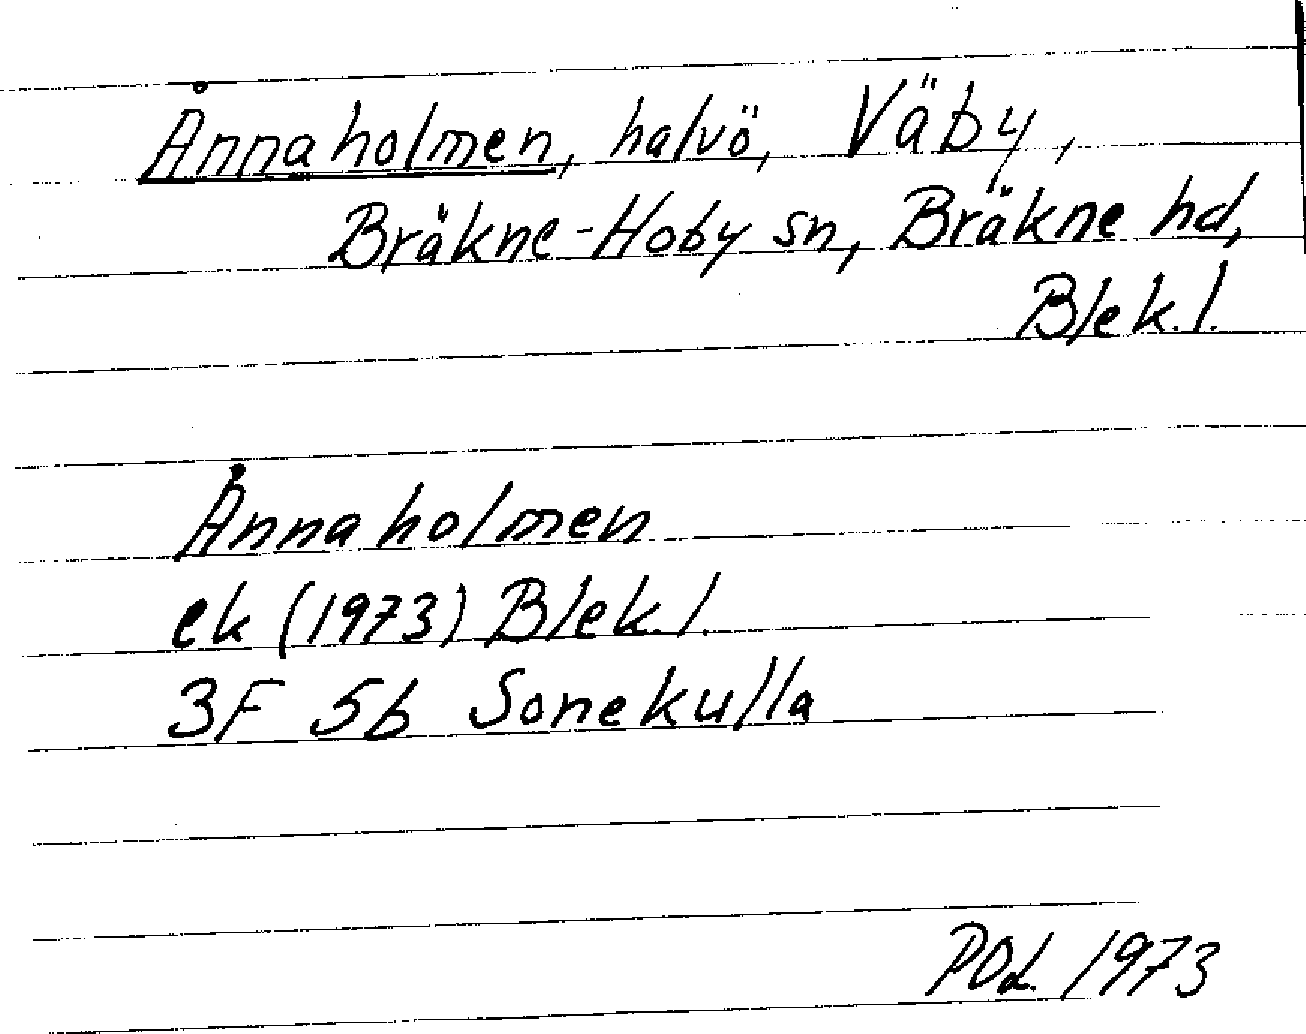 Ånnaholmen, halvö, Väby,
Bräkne-Hoby sn, Bräkne hd,
Blek.l.
Ånnaholmen
ek (1973) Blek.l.
3F 5b Sonekulla
1973